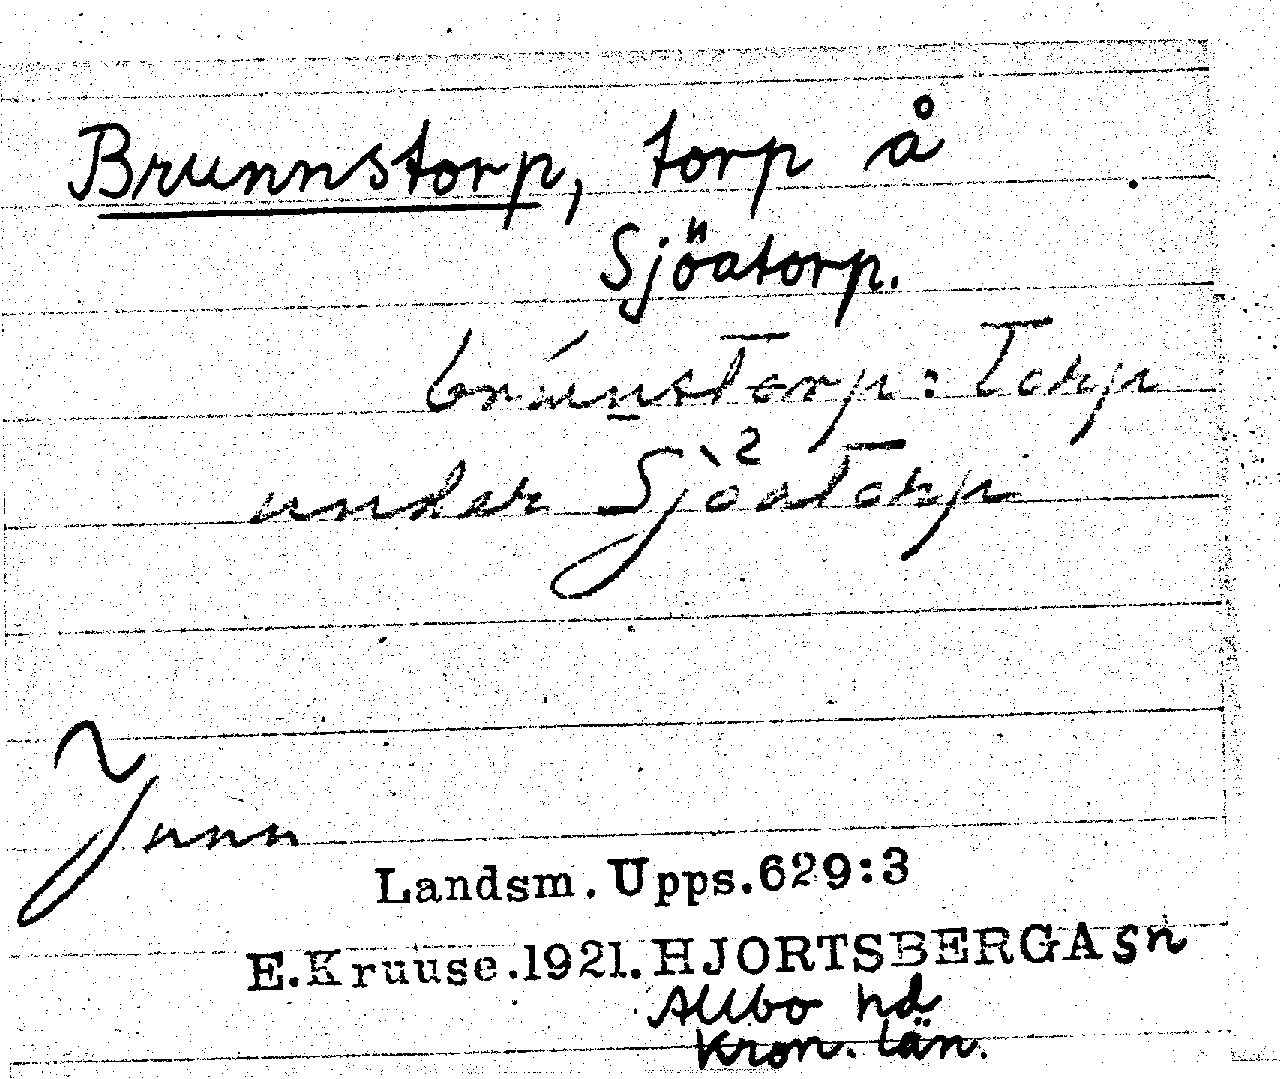 Brunnstorp, torp å
Sjöatorp.
brúnstorp: Torp
under Sjòatorp
2
Junn
Landsm. Upps. 629:3
E. Kruuse. 1921. HJORTSBERGA sn
Allbo hd
Kron. län.